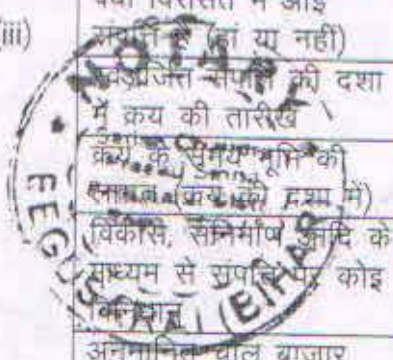 क्या विरासत में आई
(iii) संपत्ति है (हां या नहीं)
स्वअर्जित संपत्ति की दशा
में क्रय की तारीख
क्रय के समय भूमि की
(क्रय की दशा में)
विकास, संनिर्माण आदि के
माध्यम से संपत्ति पर कोई
अनुमानित चालू बाजार
NOTARY
BEGUSARAI (BIHAR)